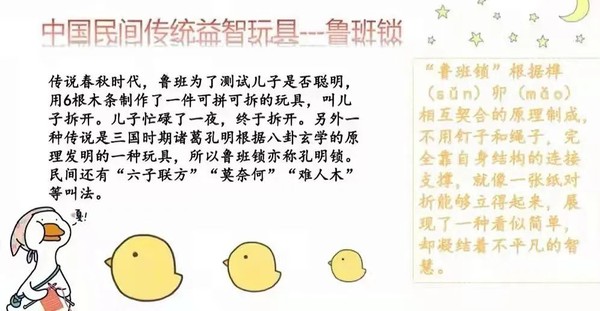 中国民间传统益智玩具---鲁班锁
传说春秋时代，鲁班为了测试儿子是否聪明，
用6根木条制作了一件可拼可拆的玩具，叫儿
子拆开。儿子忙碌了一夜，终于拆开。另外一
种传说是三国时期诸葛孔明根据八卦玄学的原
理发明的一种玩具，所以鲁班锁亦称孔明锁。
民间还有“六子联方”“莫奈何”“难人木”
等叫法。
嘎!
“鲁班锁”根据榫
（sǔn）卯（mǎo）
相互契合的原理制成，
不用钉子和绳子，完
全靠自身结构的连接
支撑，就像一张纸对
折能够立得起来，展
现了一种看似简单，
却凝结着不平凡的智
慧。